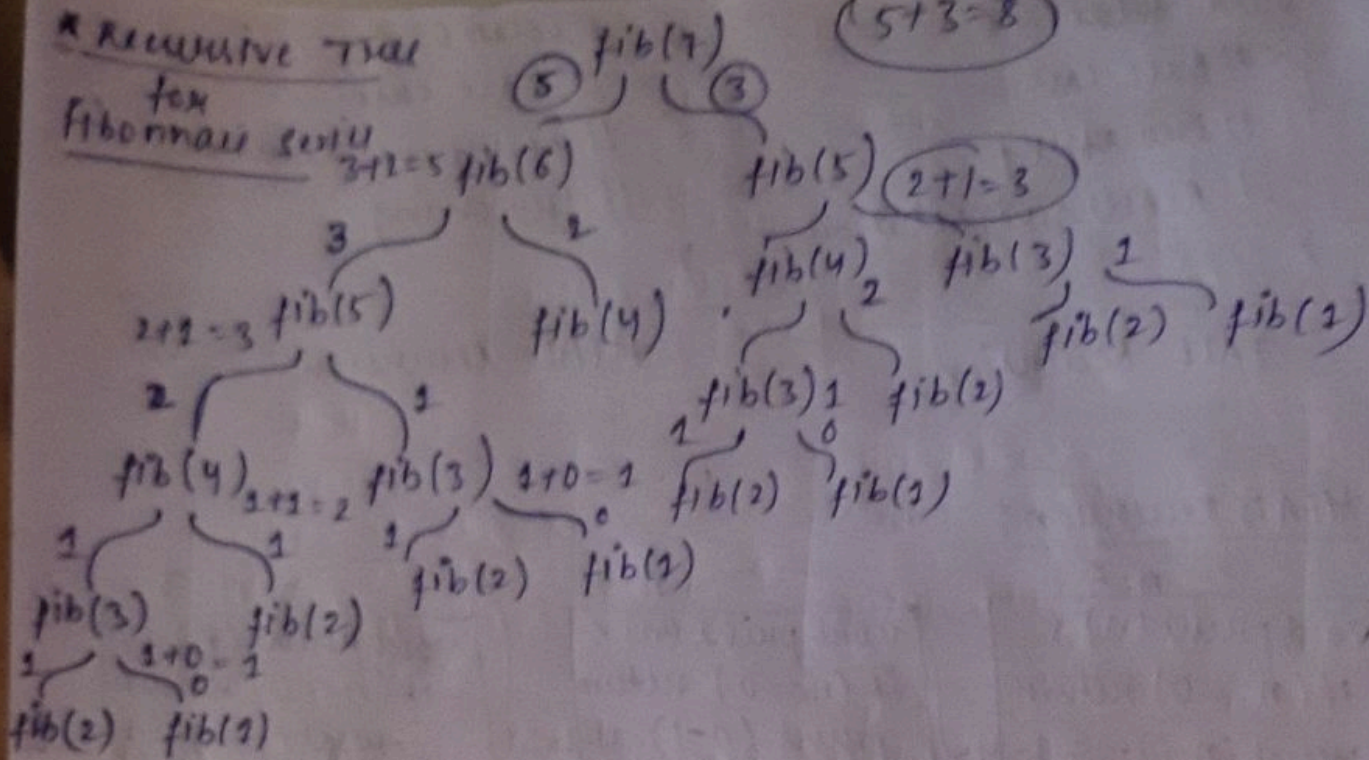 * Recursive Tree
for
Fibonnaci series
fib(7)
5+3=8
5
3
3+2=5 fib(6)
fib(5) 2+1=3
3
2
fib(4) 2
fib(3) 1
2+1=3 fib(5)
fib(4)
fib(2)
fib(1)
2
1
fib(3) 1
fib(2)
1
0
fib(4) 1+1=2
fib(3) 1+0=1
fib(2)
fib(1)
1
1
1
0
fib(3)
fib(2)
fib(2)
fib(1)
1
1+0=1
0
fib(2)
fib(1)